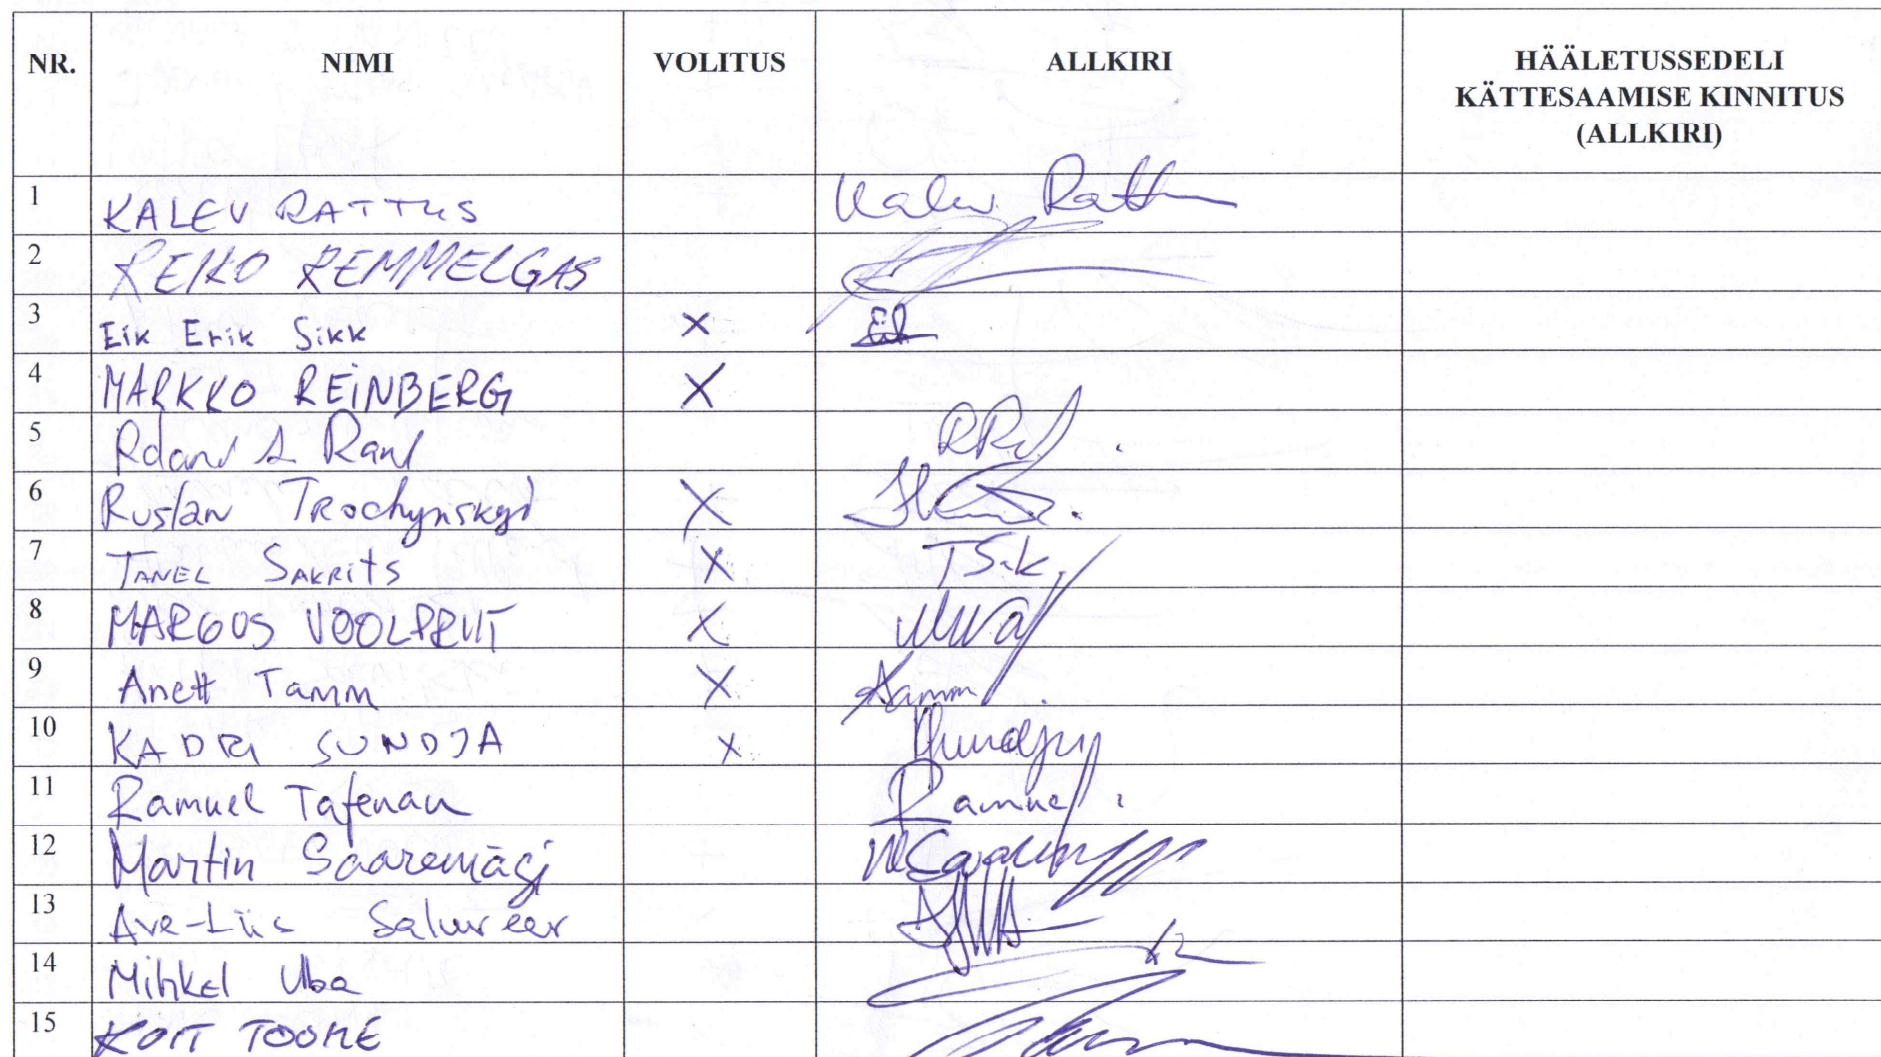 NR. NIMI VOLITUS ALLKIRI HÄÄLETUSSEDELI
KÄTTESAAMISE KINNITUS
(ALLKIRI)
1 KALEV RATTUS Kalev Ratt
2 REIKO REMMELGAS
3 Eik Erik Sikk X
4 MARKKO REINBERG X
5 Roland A Rand
6 Ruslan Trochynskyi X
7 TANEL SAKRITS X
8 MARGUS VOOLPRIIT X
9 Anett Tamm X Atamm
10 KADRI SUNDJA X
11 Ramuel Tafenau Ramuel
12 Martin Saaremägi
13 Ave-Liis Saluveer
14 Mihkel Uba
15 KOIT TOOME